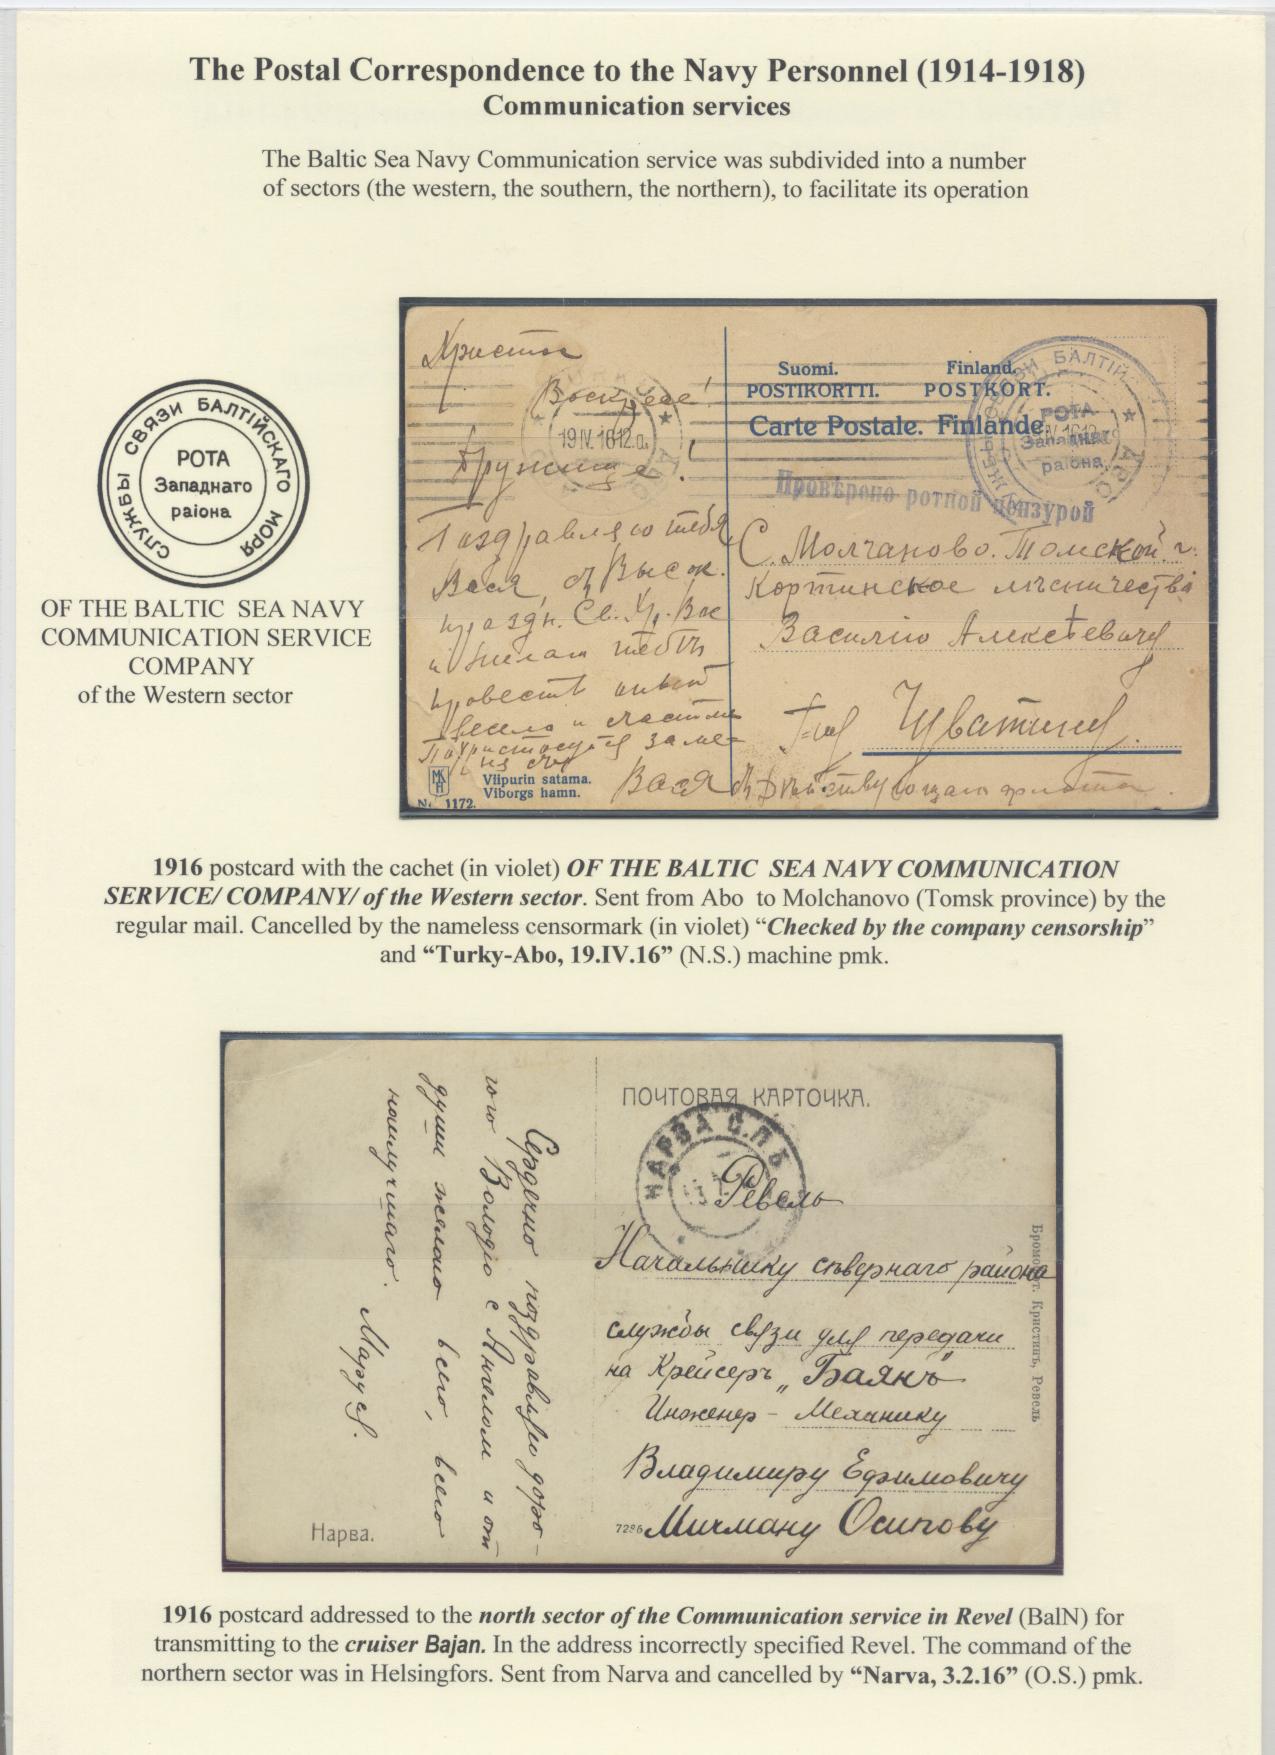 The Postal Correspondence to the Navy Personnel (1914-1918)
Communication services
The Baltic Sea Navy Communication service was subdivided into a number
of sectors (the western, the southern, the northern), to facilitate its operation
СЛУЖБЫ СВЯЗИ БАЛТІЙСКАГО МОРЯ
РОТА
Западнаго
раіона
OF THE BALTIC SEA NAVY
COMMUNICATION SERVICE
COMPANY
of the Western sector
Христос
Воскресе!
Дружище!
Поздравляю тебя
Вася, съ Высок.
праздн. Св. Хр. Вос
и желаю тебѣ
провести оный
весело и
Вася
Viipurin satama.
Viborgs hamn.
N. 1172.
19 IV. 16 12
ABO
Suomi. Finland.
POSTIKORTTI. POSTKORT.
Carte Postale. Finlande.
БАЛТІЙ
РОТА
Западнаг
раіона
Провѣрено ротной цензурой
С. Молчаново. Томской г.
лѣсничества
Василію Алексѣевичу
1916 postcard with the cachet (in violet) OF THE BALTIC SEA NAVY COMMUNICATION
SERVICE/ COMPANY/ of the Western sector. Sent from Abo to Molchanovo (Tomsk province) by the
regular mail. Cancelled by the nameless censormark (in violet) “Checked by the company censorship”
and “Turky-Abo, 19.IV.16” (N.S.) machine pmk.
Сердечно поздравляю доро-
гого Володю с Ангелом и от
души желаю всего, всего
наилучшаго. Маруся.
Нарва.
ПОЧТОВАЯ КАРТОЧКА.
НАРВА С.П.Б
Ревель
Начальнику сѣвернаго района
службы связи для передачи
на Крейсеръ „Баянъ“
Инженер - Механику
Владимиру Ефимовичу
7286 Мичману Осипову
Кристинъ, Ревель
1916 postcard addressed to the north sector of the Communication service in Revel (BalN) for
transmitting to the cruiser Bajan. In the address incorrectly specified Revel. The command of the
northern sector was in Helsingfors. Sent from Narva and cancelled by “Narva, 3.2.16” (O.S.) pmk.